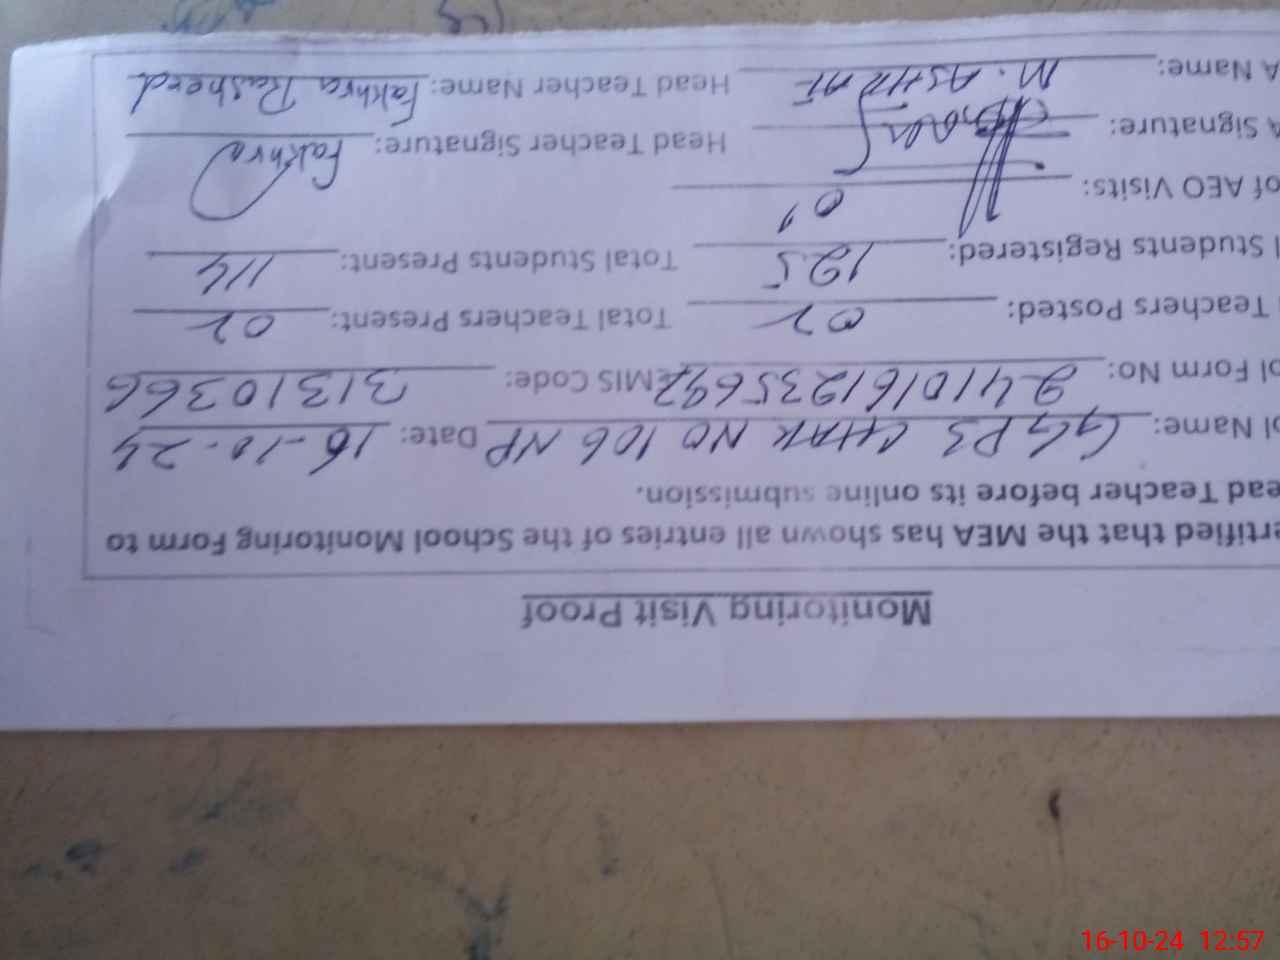 Monitoring Visit Proof
ertified that the MEA has shown all entries of the School Monitoring Form to
ead Teacher before its online submission.
ol Name: GGPS CHAK NO 106 NP Date: 16-10-24
ol Form No: EMIS Code: 31310366
Teachers Posted: 02 Total Teachers Present: 02
l Students Registered: 125 Total Students Present: 114
of AEO Visits: 01
A Signature: Head Teacher Signature: Fakhra
A Name: M. ASHRAF Head Teacher Name: Fakhra Rasheed
16-10-24 12:57